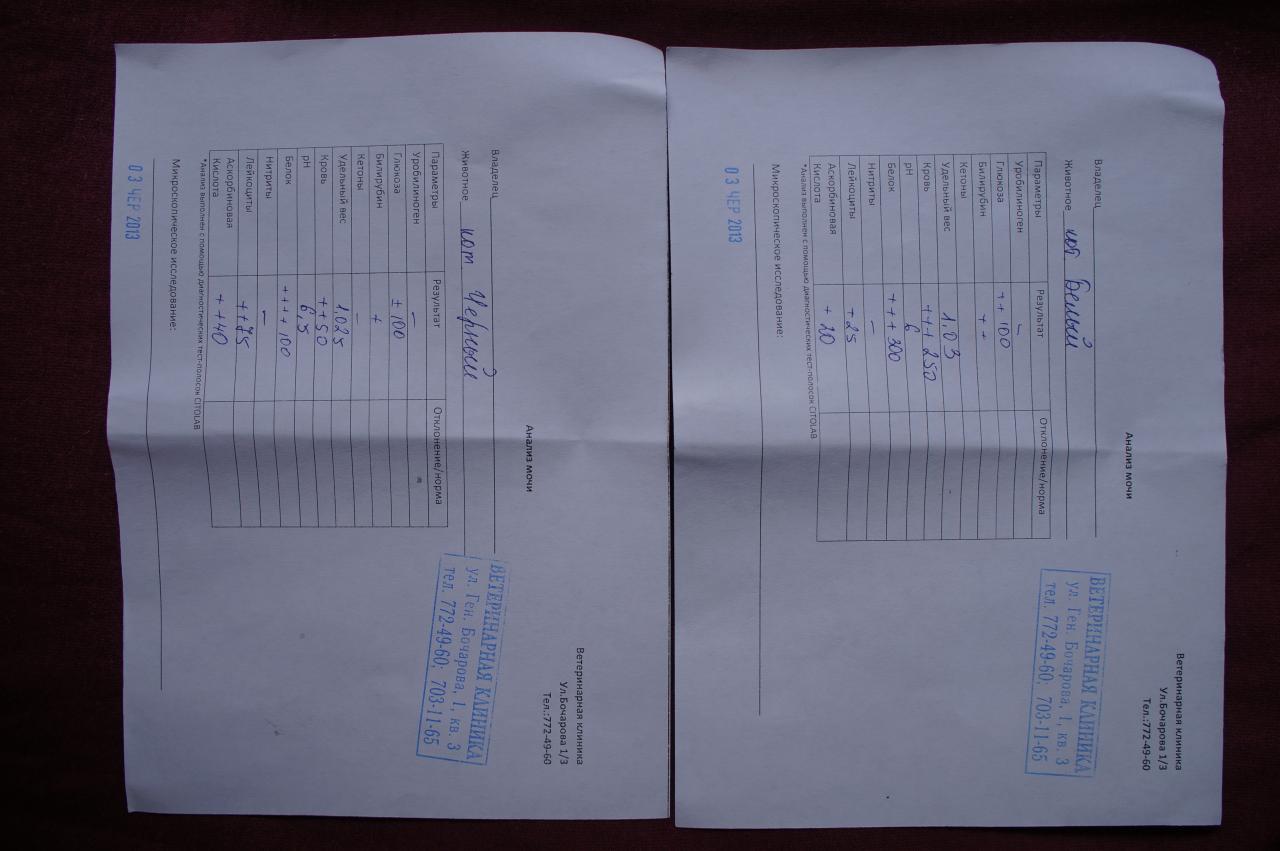 Ветеринарная клиника
Ул.Бочарова 1/3
Тел.:772-49-60
Анализ мочи
Владелец
Животное кот Белый
ВЕТЕРИНАРНАЯ КЛИНИКА
ул. Ген. Бочарова, 1, кв. 3
тел. 772-49-60; 703-11-65
Параметры Результат Отклонение/норма
Уробилиноген –
Глюкоза ++ 100
Билирубин ++
Кетоны
Удельный вес 1,03
Кровь +++ 250
pH 6
Белок +++ 300
Нитриты –
Лейкоциты + 25
Аскорбиновая Кислота + 20
*Анализ выполнен с помощью диагностических тест-полосок CITOLAB
Микроскопическое исследование:
03 ЧЕР 2013
Ветеринарная клиника
Ул.Бочарова 1/3
Тел.:772-49-60
Анализ мочи
Владелец
Животное кот Черный
ВЕТЕРИНАРНАЯ КЛИНИКА
ул. Ген. Бочарова, 1, кв. 3
тел. 772-49-60; 703-11-65
Параметры Результат Отклонение/норма
Уробилиноген –
Глюкоза ± 100
Билирубин +
Кетоны –
Удельный вес 1.025
Кровь ++ 50
pH 6,5
Белок +++ 100
Нитриты –
Лейкоциты ++ 75
Аскорбиновая Кислота ++ 40
*Анализ выполнен с помощью диагностических тест-полосок CITOLAB
Микроскопическое исследование:
03 ЧЕР 2013